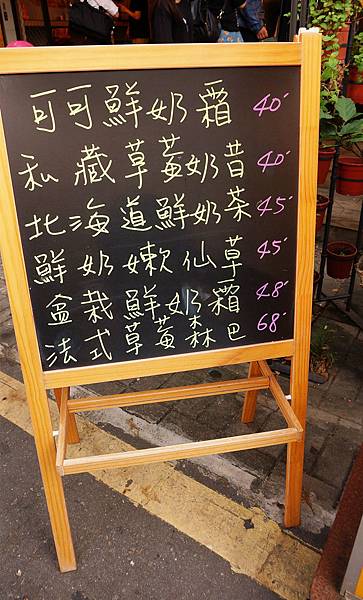 可可鮮奶霜 40
私藏草莓奶昔 40
北海道鮮奶茶 45
鮮奶嫩仙草 45
盆栽鮮奶霜 48
法式草莓森巴 68